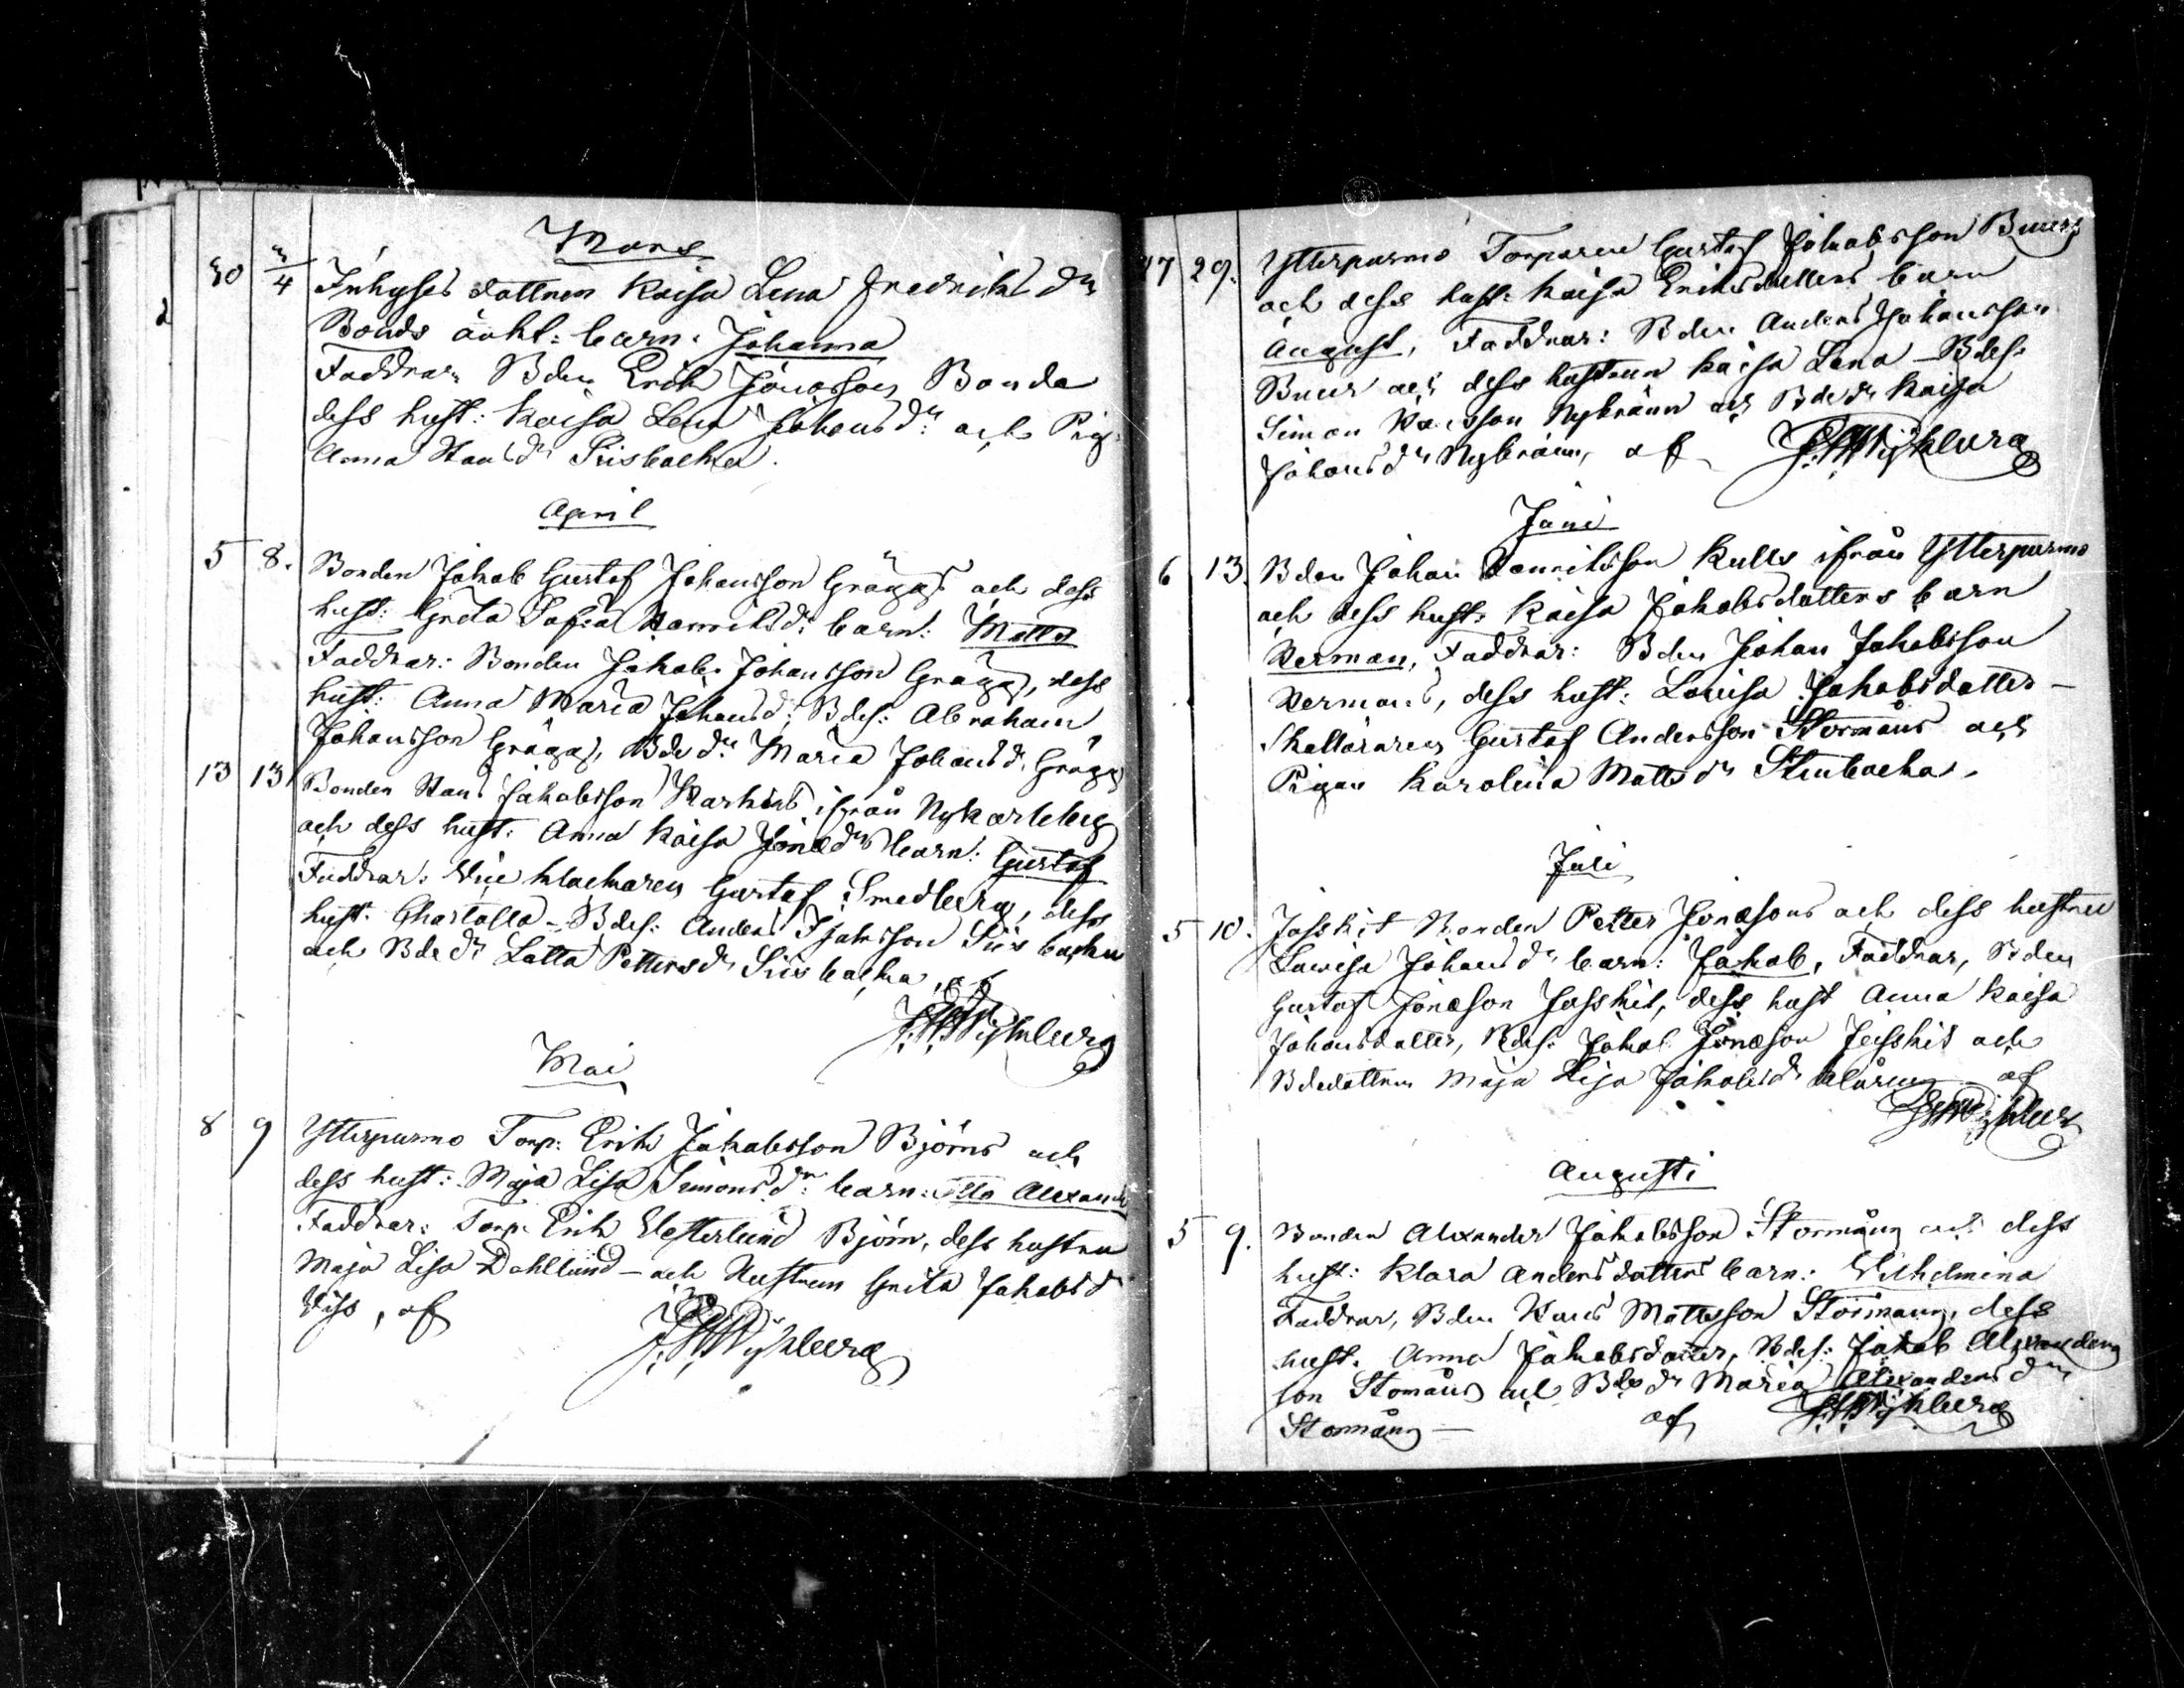 Mars
30 3/4 Inhyses dottren Kaisa Lena Fredriks dr
Bonds oäkt: barn: Johanna
Faddrar Bden Erik Jonasson Bonda
dess hust: Kaisa Lena Johans dr: och Pig:
Anna Hans dr Sisbacka.
April
5 8. Bonden Jakob Gustaf Johansson Grägg och dess
hust: Greta Sofia Henriks dr barn: Matts
Faddrar: Bonden Jakob Johansson Grägg, dess
hust: Anna Maria Johans d: Bdes: Abraham
Johansson Grägg, Bde dr Maria Johans d. Grägg
13 13 Bonden Hans Jakobsson ifrån Nykarleby
och dess hust: Anna Kaisa Jonæ drs barn: Gustaf
Faddrar: Gustaf Smedberg, dess
hust: Charlotta - Bdes: Anders Isaksson Sisbacka
och Bde dr Lotta Petters dr Sisbacka, af
Mai
8 9 Ytterpurmo Torp: Erik Jakobsson Björns och
dess hust: Maja Lisa Simons dr: barn: Otto Alexander
Faddrar: Torp: Erik Westerlund Björn, dess hustru
Maja Lisa Dahllund - och Hustrun Greta Jakobs d
af
27 29. Ytterpurmo Torparen Gustaf Jakobsson
och dess hust: Kaisa Eriksdotters barn
August, Faddrar: Bden Anders Johansson
och dess hustrun Kaisa Lena - Bdes:
Simon Nybränn och Bde dr Kaisa
Johans dr Nybränn, af
Juni
6 13. Bden Johan Henriksson Kulls ifrån Ytterpurmo
och dess hust: Kaisa Jakobsdotters barn
Herman, Faddrar: Bden Johan Jakobsson
Hermans, dess hust: Lovisa Jakobsdotter -
Gustaf Andersson Stormåns och
Pigan Karolina Matts dr Stenbacka.
Juli
5 10. Bonden Petter Jonæsons och dess hustru
Lovisa Johans dr barn: Jakob, Faddrar, Bden
Gustaf Jonæson dess hust Anna Kaisa
Johansdotter, Bdes: Jakob Jonæson och
Bdedottren Maja Lisa Jakobs dr af
Augusti
5 9. Bonden Alexander Jakobsson Stormång och dess
hust: Klara Anders dotters barn: Wilhelmina
Faddrar, Bden Hans Mattsson Stormång, dess
hust. Anna Jakobsdotter, Bdes: Jakob Alexanders
son Stomåns och Bde dr Maria Alexanders dr
Stormång - af